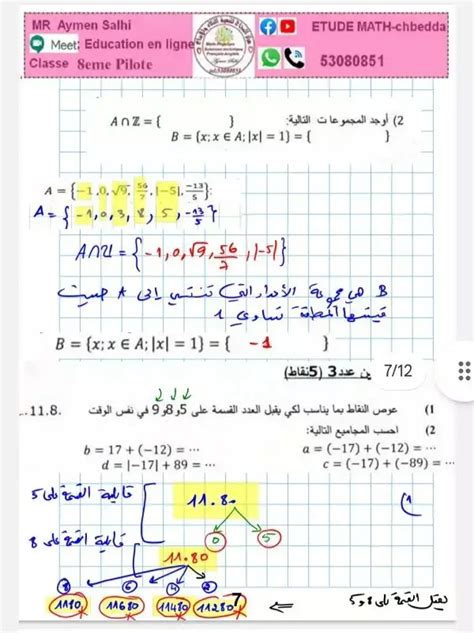 MR Aymen Salhi
Meet: Education en ligne
Classe 8eme Pilote
ETUDE MATH-chbedda
53080851
2) أوجد المجموعات التالية:
A ∩ ℤ = { }
B = {x; x ∈ A; |x| = 1} = { }
A = {−1, 0, √9, 56/7, |−5|, −13/5}:
A = {-1, 0, 3, 8, 5, -13/5}
A∩ℤ = {-1, 0, √9, 56/7, |-5|}
B هي مجموعة الأعداد التي تنتمي إلى A حيث
قيمتها المطلقة تساوي 1
B = {x; x ∈ A; |x| = 1} = { -1 }
ين عدد3 (5نقاط)
7/12
1) عوض النقاط بما يناسب لكي يقبل العدد القسمة على 5و8و9 في نفس الوقت 11.8.
2) احسب المجاميع التالية:
a = (−17) + (−12) = ⋯
b = 17 + (−12) = ⋯
c = (−17) + (−89) = ⋯
d = |−17| + 89 = ⋯
1)
قابلية القسمة على 5
11.8.
0 5
قابلية القسمة على 8
11.80
8 6 4 2
1180, 11680 11480 11280
يقبل القسمة على 8 و5